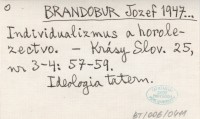 o
BRANDOBUR Jozef 1947...
Individualizmus a horole-
zectvo. – Krásy Slov. 25,
nr 3-4: 57-59.
Ideologia tatern.
BT/006/0411